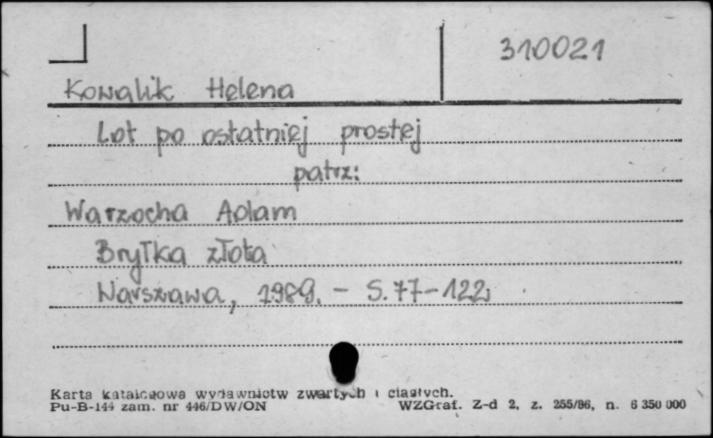 310021
Kowalik Helena
Lot po ostatniej prostej
patrz:
Warzocha Adam
Bryłka złota
Warszawa, 1989. - S. 77-122
Karta katalogowa wydawnictw zwartych i ciągłych.
Pu-B-144 zam. nr 446/DW/ON
WZGraf. Z-d 2, z. 255/86, n. 6 350 000